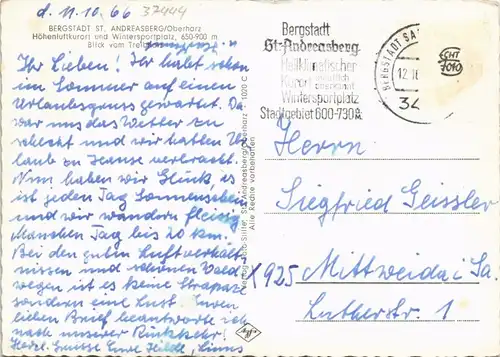 d. 11.10.66 37444
BERGSTADT ST. ANDREASBERG/Oberharz
Höhenluftkurort und Wintersportplatz, 650-900 m
Blick vom
Ihr Lieben! Ihr habt schon
im Sommer auf einen
Urlaubsgruss gewartet. Da
war uns das Wetter zu
schlecht und wir hatten Ur
laub zu Hause verbracht.
Nun haben wir Glück, es
ist jeden Tag Sonnenschein
und wir wandern fleissig
Manchen Tag bis 20 km.
Bei den guten Luftverhält
nissen und schönen Wald
wegen ist es keine Strapaze
sondern eine Lust. Euren
lieben Brief beantworte ich
nach unserer Rückkehr!
Herzl. Grüsse Eure Hilde,
Verlag Foto-Stille, St. Andreasberg/Oberharz 1020 C
Alle Rechte vorbehalten
Bergstadt
St. Andreasberg
Heilklimatischer
Kurort
Wintersportplatz
Stadtgebiet 600-730m
BERGSTADT SA
12.10
34
Herrn
Siegfried Geissler
X 925 Mittweida i. Sa.
Lutherstr. 1
Agfa